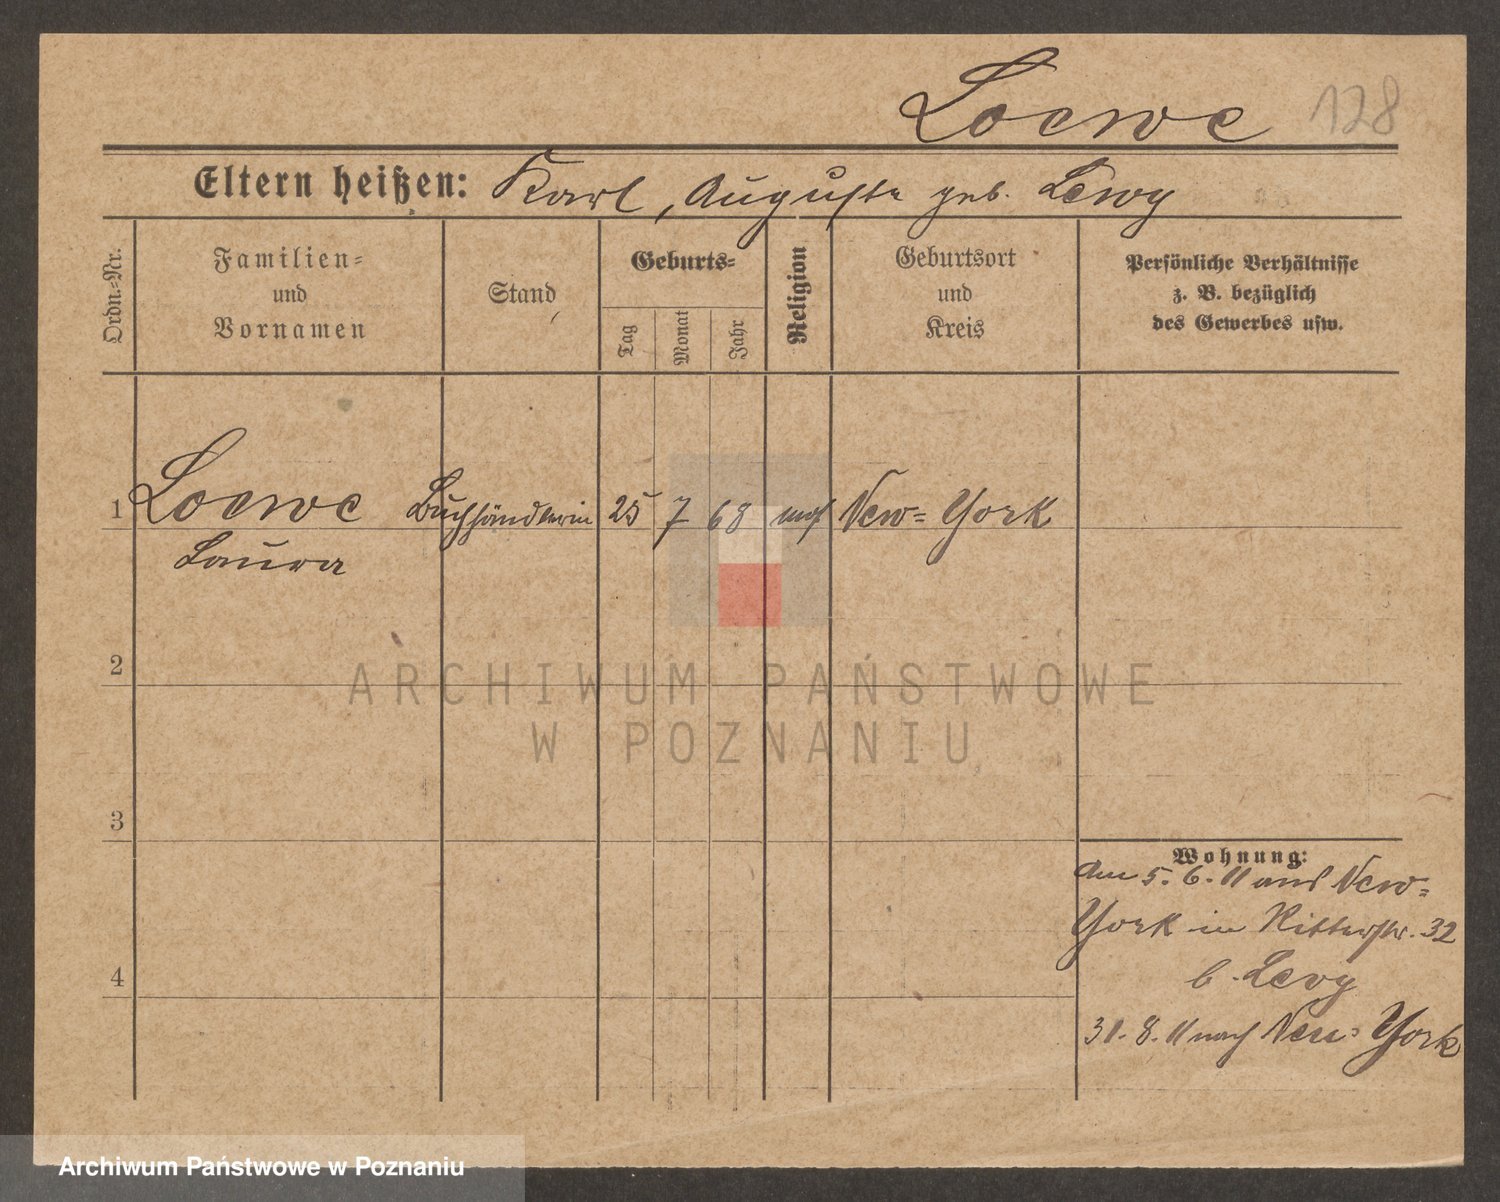 Loewe 128
Eltern heißen: Karl, Auguste geb. Lewy
Ordn.-Nr.
Familien-
und
Vornamen
Stand
Geburts-
Tag
Monat
Jahr
Religion
Geburtsort
und
Kreis
Persönliche Verhältnisse
z. B. bezüglich
des Gewerbes usw.
1 Loewe Buchhändlerin 25 7 68 mos New-York
Laura
2
ARCHIWUM PAŃSTWOWE
W POZNANIU
3
Wohnung:
Am 5.6.11 aus New-
York in Ritterstr. 32
b. Levy
4
31.8.11 nach New-York
Archiwum Państwowe w Poznaniu